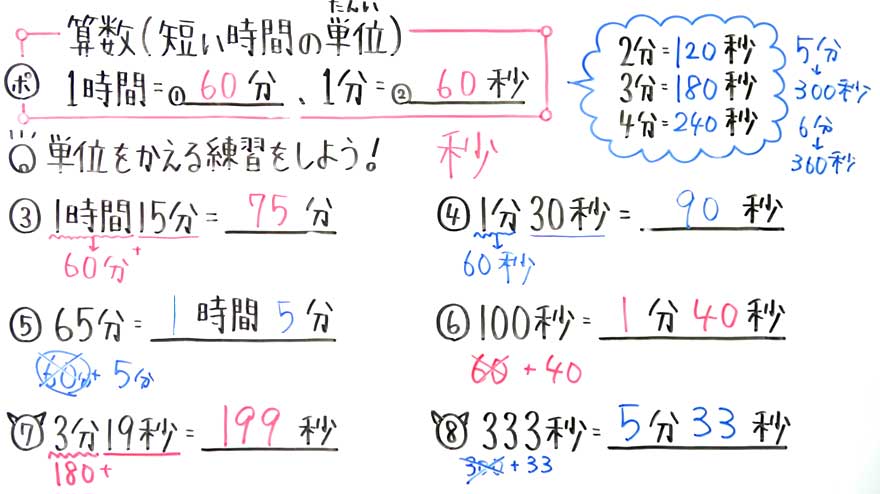 たんい
算数(短い時間の単位)
ポ 1時間=① 60 分 、1分=② 60 秒
2分=120 秒
3分=180 秒
4分=240 秒
5分
↓
300秒
6分
↓
360秒
単位をかえる練習をしよう! 秒
③ 1時間15分= 75 分
60分+
④ 1分30秒= 90 秒
60秒
⑤ 65分= 1 時間 5 分
60分+ 5分
⑥ 100秒= 1 分 40 秒
60 + 40
⑦ 3分19秒= 199 秒
180+
⑧ 333秒= 5 分 33 秒
300 + 33